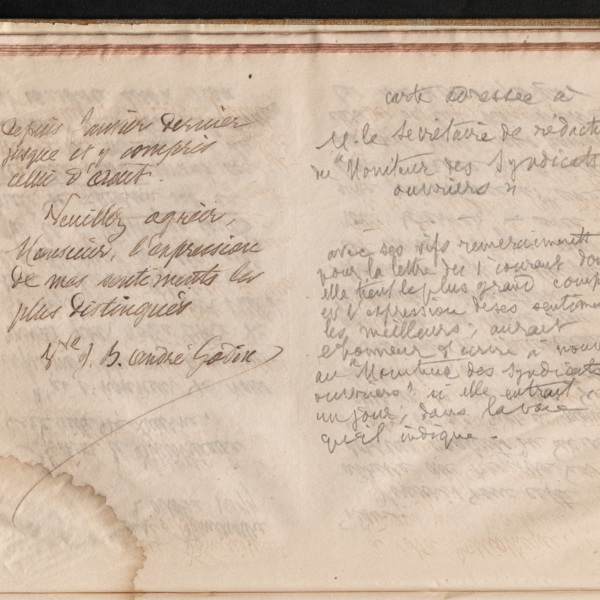 depuis Janvier dernier
jusque et y compris
celui d'août.
Veuillez agréer,
Monsieur, l'expression
de mes sentiments les
plus distingués
Vve J. B. André Godin
carte adressée à
M. le Secrétaire de rédacti
du "Moniteur des Syndicats
ouvriers"
avec ses vifs remerciements
pour la lettre du 1er courant don
elle tient le plus grand comp
et l'expression de ses sentimen
les meilleurs; aurait
l'honneur d'écrire à nouv
au "Moniteur des Syndicats
ouvriers" si elle entrait,
un jour, dans la voie
qu'il indique.